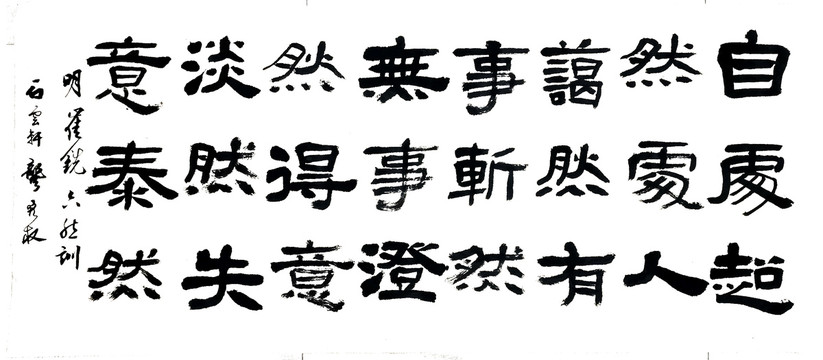 自處超
然處人
藹然有
事斬然
無事澄
然得意
淡然失
意泰然
明崔銑六然訓
石雲軒龔